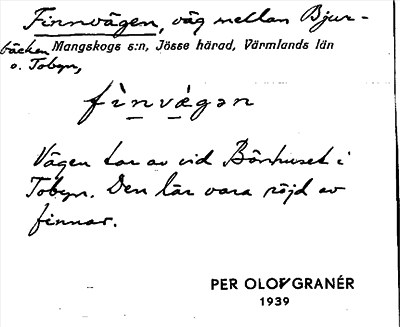 Finnvägen, väg mellan Bjur-
bäcken Mangskogs s:n, Jösse härad, Värmlands län
o. Tobyn,
fìnvǽgən
Vägen tar av vid Bönhuset i
Tobyn. Den lär vara röjd av
finnar.
PER OLOF GRANÉR
1939